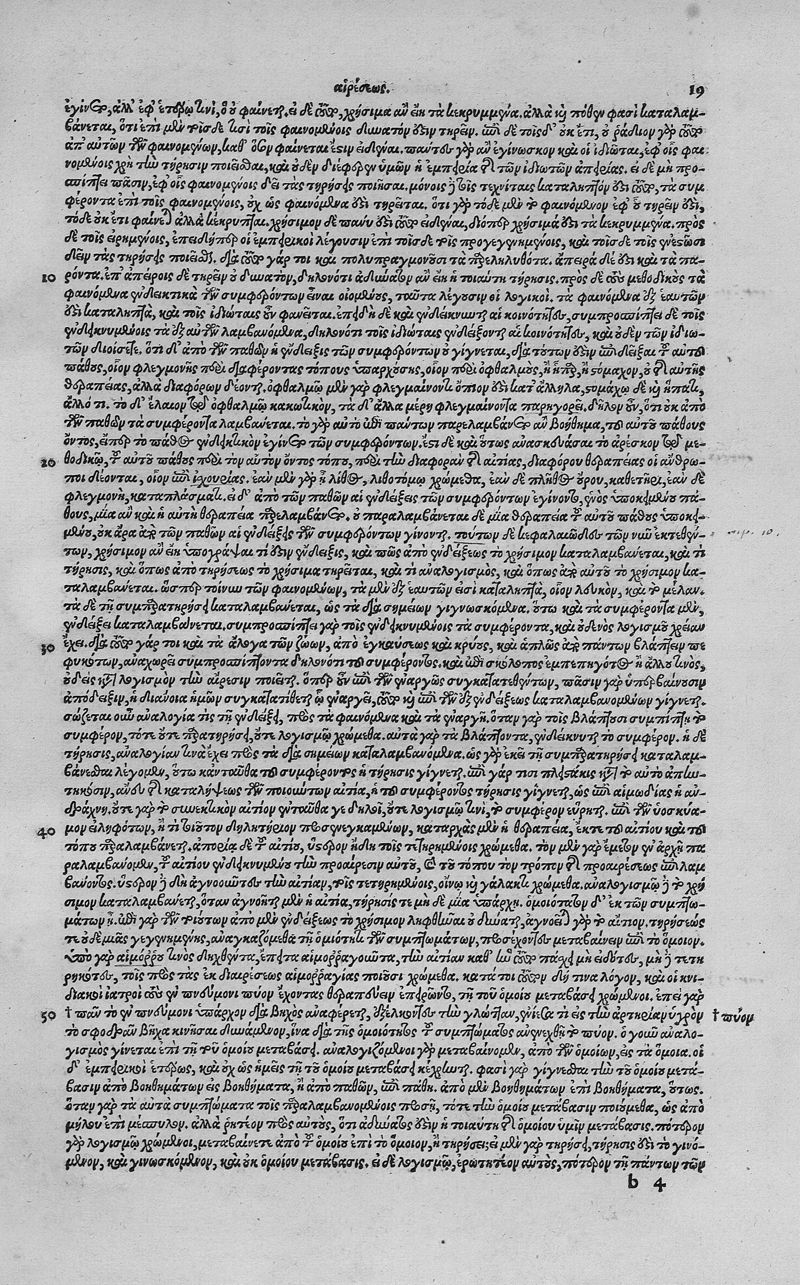 αἱρέσεως. 19
ἐγίνετο, ἀλλ' ἐφ' ἑτέρῳ τινὶ, ὃ οὐ φαίνεται. εἰ δὲ τοῦτο, χρήσιμα ἂν εἴη τὰ κεκρυμμένα. ἀλλὰ καὶ πόθεν φασὶ καταλαμ-
βάνεται, ὅτι ἐπὶ μὲν τοῖσδέ τισι τοῖς φαινομένοις δυνατόν ἐστιν τηρεῖν. ἐπὶ δὲ τοῖσδ' οὐκ ἔτι, οὐ ῥάδιον γὰρ τοῦτο
ἀπ' αὐτῶν τῶν φαινομένων, καθ' ὅσον φαίνεταί ἐστιν εἰδέναι. πάντως γὰρ ἂν ἐγίνωσκον καὶ οἱ ἰδιῶται, ἐφ' οἷς φαι-
νομένοις χρὴ τὴν τήρησιν ποιεῖσθαι, καὶ οὐδὲν διέφερεν ὑμῶν ἡ ἐμπειρία τῆς τῶν ἰδιωτῶν ἀπειρίας. εἰ δὲ μὴ προσ-
πίπτει πᾶσιν, ἐφ' οἷς φαινομένοις δεῖ τὰς τηρήσεις ποιῆσαι. μόνοις δὲ τοῖς τεχνίταις καταληπτόν ἐστι τοῦτο, τὰ συμ-
φέροντα ἐπὶ τοῖς φαινομένοις, οὐχ ὡς φαινόμενά ἐστι τηρεῖται. ὅτι γὰρ τόδε μὲν τὸ φαινόμενον ἐφ' ᾧ τηρεῖν δεῖ,
τόδε οὐκ ἔτι φαίνεται ἀλλὰ κέκρυπται. χρήσιμον δὲ πάνυ ἐστὶ τοῦτο εἰδέναι, διόπερ χρήσιμά ἐστι τὰ κεκρυμμένα. πρὸς
δὲ τοῖς εἰρημένοις, ἐπειδήπερ οἱ ἐμπειρικοὶ λέγουσιν ἐπὶ τοῖσδε τοῖς προγεγενημένοις, καὶ τοῖσδε τοῖς ἐνεστῶσι
δεῖν τὰς τηρήσεις ποιεῖσθαι. διὰ τοῦτο γάρ τοι καὶ πολυπραγμονοῦσι τὰ παρεληλυθότα. ἄπειρα δέ ἐστι καὶ τὰ πα-
10 ρόντα. ἐπ' ἀπείροις δὲ τηρεῖν οὐ δυνατὸν, δηλονότι ἀδύνατον ἂν εἴη ἡ τοιαύτη τήρησις. πρὸς δὲ τοὺς μεθοδικοὺς τὰ
φαινόμενα ἐνδεικτικὰ τῶν συμφερόντων εἶναι οἰομένους, ταῦτα λέγουσιν οἱ λογικοί. τὰ φαινόμενα ἐξ ἑαυτῶν
ἐστὶ καταληπτὰ, καὶ τοῖς ἰδιώταις οὖν φανεῖται. ἐπειδὴ δὲ καὶ ἐνδείκνυνται αἱ κοινότητες, συμπροσπίπτει δὲ τοῖς
ἐνδεικνυμένοις τὰ ἐξ αὐτῶν λαμβανόμενα, δηλονότι τοῖς ἰδιώταις ἐνδείξονται αἱ κοινότητες, καὶ οὐδὲν τῶν ἰδιω-
τῶν διοίσετε. ὅτι δ' ἀπὸ τῶν παθῶν ἡ ἔνδειξις τῶν συμφερόντων οὐ γίγνεται, διὰ τούτων ἐστὶν ἐπιδεῖξαι τὸ αὐτὸ
πάθος, οἷον φλεγμονῆς περὶ διαφέροντας τόπους ὑπαρχούσης, οἷον περὶ ὀφθαλμοὺς, ἢ ἧπαρ, ἢ στόμαχον, οὐ τῆς αὐτῆς
θεραπείας, ἀλλὰ διαφόρων δέονται. ὀφθαλμῷ μὲν γὰρ φλεγμαίνοντι ὄπιον ἐστὶ κατάλληλα, στομάχῳ δὲ καὶ ἥπατι,
ἄλλό τι. τὸ δ' ἔλαιον τῷ ὀφθαλμῷ κακωτικὸν, τὰ δ' ἄλλα μέρη φλεγμαίνοντα παρηγορεῖ. δῆλον οὖν, ὅτι οὐκ ἀπὸ
τῶν παθῶν τὰ συμφέροντα λαμβάνεται. τὸ γὰρ αὐτὸ ἐπὶ πάντων παρελαμβάνετο ἂν βοήθημα, τοῦ αὐτοῦ πάθους
ὄντος, εἴπερ τὸ πάθος ἐνδεικτικὸν ἐγίνετο τῶν συμφερόντων. ἔτι δὲ καὶ οὕτως ἀνασκευάσαι τὸ ἀρέσκον τῷ με-
20 θοδικῷ, τὸ αὐτὸ πάθος περὶ τὸν αὐτὸν ὄντος τόπον, περὶ τὴν διαφορὰν τῆς αἰτίας, διαφόρου θεραπείας οἱ ἄνθρω-
ποι δέονται, οἷον ἐπὶ ἰσχουρίας. ἐὰν μὲν γὰρ ᾖ λίθος, λιθοτόμῳ χρώμεθα, ἐὰν δὲ πλῆθος οὔρου, καθετῆρι, ἐὰν δὲ
φλεγμονὴ, καταπλάσματι. εἰ δ' ἀπὸ τῶν παθῶν αἱ ἐνδείξεις τῶν συμφερόντων ἐγίνοντο, ἑνὸς ὑποκειμένου πά-
θους, μία ἂν καὶ ἡ αὐτὴ θεραπεία παρελαμβάνετο. οὐ παραλαμβάνεται δὲ μία θεραπεία τοῦ αὐτοῦ πάθους ὑποκει-
μένου, οὐκ ἄρα ἀπὸ τῶν παθῶν αἱ ἐνδείξεις τῶν συμφερόντων γίνονται. τούτων δὲ κεφαλαιωδῶς τῶν νῦν ἐκτεθέν-
των, χρήσιμον ἂν εἴη ὑπογράψαι τί ἐστιν ἔνδειξις, καὶ πῶς ἀπὸ ἐνδείξεως τὸ χρήσιμον καταλαμβάνεται, καὶ τί
τήρησις, καὶ ὅπως ἀπὸ τηρήσεως τὸ χρήσιμα τηρεῖται, καὶ τί ἀναλογισμὸς, καὶ ὅπως ἀπὸ αὐτοῦ τὸ χρήσιμον κα-
ταλαμβάνεται. ὥσπερ τοίνυν τῶν φαινομένων, τὰ μὲν ἐξ ἑαυτῶν εἰσὶ καταληπτὰ, οἷον λευκὸν, καὶ τὸ μέλαν.
τὰ δὲ τῇ συμπαρατηρήσει καταλαμβάνεται, ὡς τὰ διὰ σημείων γιγνωσκόμενα. οὕτω καὶ τὰ συμφέροντα μὲν,
ἐνδείξει καταλαμβάνεται, συμπροσπίπτει γὰρ τοῖς ἐνδεικνυμένοις τὰ συμφέροντα, καὶ οὐδενὸς λογισμοῦ χρείαν
30 ἔχει. διὰ τοῦτο γάρ τοι καὶ τὰ ἄλογα τῶν ζώων, ἀπὸ ἐγκαύσεως καὶ κρύους, καὶ ἁπλῶς ἀπὸ πάντων βλάπτειν πε-
φυκότων, ἀναχωρεῖ συμπροσπίπτοντα δηλονότι τοῦ συμφέροντος. καὶ ἐπὶ σκόλοπος ἐμπεπηγότος ἢ ἄλλου τινὸς,
οὐδεὶς κατὰ λογισμὸν τὴν αἵρεσιν ποιεῖται. ὅπερ οὖν ἐπὶ τῶν ἐναργῶς συγκατατεθέντων, πᾶσιν γὰρ ὑπερβαίνουσιν
ἀπόδειξιν, ἡ διάνοια ἡμῶν συγκατατίθεται τῷ ἐναργεῖ, τοῦτο καὶ ἐπὶ τῶν ἐξ ἐνδείξεως καταλαμβανομένων γίγνεται.
σώζεται οὖν ἀναλογία τις τῇ ἐνδείξει, πρὸς τὰ φαινόμενα καὶ τὰ ἐναργῆ. ὅταν γὰρ τοῖς βλάπτουσι συμπίπτῃ τὸ
συμφέρον, τότε οὔτε παρατηρήσει, οὔτε λογισμῷ χρώμεθα. αὐτὰ γὰρ τὰ βλάπτοντα, ἐνδείκνυται τὸ συμφέρον. ἡ δὲ
τήρησις, ἀναλογίαν τινὰ ἔχει πρὸς τὰ διὰ σημείων καταλαμβανόμενα. ὡς γὰρ ἐκεῖ τῇ συμπαρατηρήσει καταλαμ-
βάνεσθαι λέγομεν, οὕτω κἀνταῦθα τοῦ συμφέροντος ἡ τήρησις γίγνεται. ἐπὶ γάρ τισι πλειστάκις κατὰ τὸ αὐτὸ ἀπαν-
τήκουσιν, ἄνευ τῆς καταλήψεως τῶν ποιούντων αἰτία, ἡ τοῦ συμφέροντος τήρησις γίγνεται, ὡς ἐπὶ αἱμωδίας ἡ ἀν-
δράχνη. οὔτε γὰρ τὸ συνεκτικὸν αἴτιον ἐνταῦθα γε δηλοῖ, οὔτε λογισμῷ τινι, τὸ συμφέρον εὕρηται. ἐπὶ τῶν ὑοσκύα-
40 μον εἰληφότων, ἤ τι τοιοῦτον δηλητήριον προσενεγκαμένων, καταρχὰς μὲν ἡ θεραπεία, ἔκ τε τοῦ αἰτίου καὶ τοῦ
τόπου παραλαμβάνεται. ἀπορίᾳ δὲ τοῦ αἰτίου, ὕστερον ἤδη τοῖς τετηρημένοις χρώμεθα. τὸν μὲν γὰρ ἔμετον ἐν ἀρχῇ πα
ραλαμβάνομεν, τοῦ αἰτίου ἐνδεικνυμένου τὴν προαίρεσιν αὐτοῦ, καὶ τοῦ τόπου τὸν τρόπον τῆς προαιρέσεως ἐπιλαμ
βάνοντος. ὕστερον δὲ δὴ ἀγνοοῦντες τὴν αἰτίαν, τοῖς τετηρημένοις, οἴνῳ καὶ γάλακτι χρώμεθα. ἀναλογισμῷ δὲ τὸ χρή
σιμον καταλαμβάνεται, ὅταν ἀγνοῆται μὲν ἡ αἰτία, τήρησίς τε μὴ δὲ μία ὑπάρχῃ. ὁμοιότατον δ' ἐκ τῶν συμπτω-
μάτων ᾖ. ἐπὶ γὰρ τῶν τοιούτων ἀπὸ μὲν ἐνδείξεως τὸ χρήσιμον ληφθῆναι οὐ δύναται, ἀγνοεῖται γὰρ τὸ αἴτιον. τηρήσεώς
τε οὐδεμιᾶς γεγενημένης, ἀναγκαζόμεθα τῇ ὁμοιότητι τῶν συμπτωμάτων, προσέχοντες μεταβαίνειν ἐπὶ τὸ ὅμοιον.
ὑπὸ γὰρ αἱμόρρου τινὸς δηχθέντα, ἔπειτα αἱμορραγοῦντα, τὴν αἰτίαν καθ' ἣν τοῦτο πάσχει μὴ εἰδότες, μὴ δὲ τετη
ρηκότες, τοῖς πρὸς τὰς ἐκ διαιρέσεως αἱμορραγίας ποιοῦσι χρώμεθα. κατά τοι τοῦτον δή τινα λόγον, καὶ οἱ κνί-
διακοὶ ἰατροὶ τοὺς ἐν πνεύμονι πύον ἔχοντας θεραπεύειν ἐπειρῶντο, τῇ τοῦ ὁμοίου μεταβάσει χρώμενοι. ἐπεὶ γὰρ
50 † πᾶν τὸ ἐν πνεύμονι ὑπάρχον διὰ βηχὸς ἀναφέρεται, ἐξέλκοντες τὴν γλῶτταν, ἐνίεσάν τι εἰς τὴν ἀρτηρίαν ὑγρὸν † πύον
τὸ σφοδρὰν βῆχα κινῆσαι δυνάμενον, ἵνα διὰ τῆς ὁμοιότητος τοῦ συμπτώματος ἀνενεχθῇ τὸ πύον. ὁ γοῦν ἀναλο-
γισμὸς γίνεται ἐπὶ τῇ τοῦ ὁμοίου μεταβάσει. ἀναλογιζόμενοι γὰρ μεταβαίνομεν, ἀπὸ τῶν ὁμοίων, εἰς τὰ ὅμοια. οἱ
δ' ἐμπειρικοὶ ἑτέρως, καὶ οὐχ ὡς ἡμεῖς τῇ τοῦ ὁμοίου μεταβάσει κέχρηνται. φασὶ γὰρ γίγνεσθαι τὴν τοῦ ὁμοίου μετά-
βασιν ἀπὸ βοηθημάτων εἰς βοηθήματα, ἢ ἀπὸ παθῶν, ἐπὶ πάθη. ἀπὸ μὲν βοηθημάτων ἐπὶ βοηθήματα, οὕτως.
ὅταν γὰρ τὰ αὐτὰ συμπτώματα τοῖς παραλαμβανομένοις προσῇ, τότε τὴν ὁμοίου μετάβασιν ποιούμεθα, ὡς ἀπὸ
μήλου ἐπὶ μέσπιλον. ἀλλὰ ῥητέον πρὸς αὐτοὺς, ὅτι ἀδύνατός ἐστιν ἡ τοιαύτη τοῦ ὁμοίου ὑμῖν μετάβασις. πότερον
γὰρ λογισμῷ χρώμενοι, μεταβαίνετε ἀπὸ τοῦ ὁμοίου ἐπὶ τὸ ὅμοιον, ἢ τηρήσει; εἰ μὲν γὰρ τηρήσει, τήρησίς ἐστι τὸ γινό-
μενον, καὶ γινωσκόμενον, καὶ οὐκ ὁμοίου μετάβασις. εἰ δὲ λογισμῷ, ἐρωτητέον αὐτοὺς, πότερον τῇ πάντων τῶν
b 4